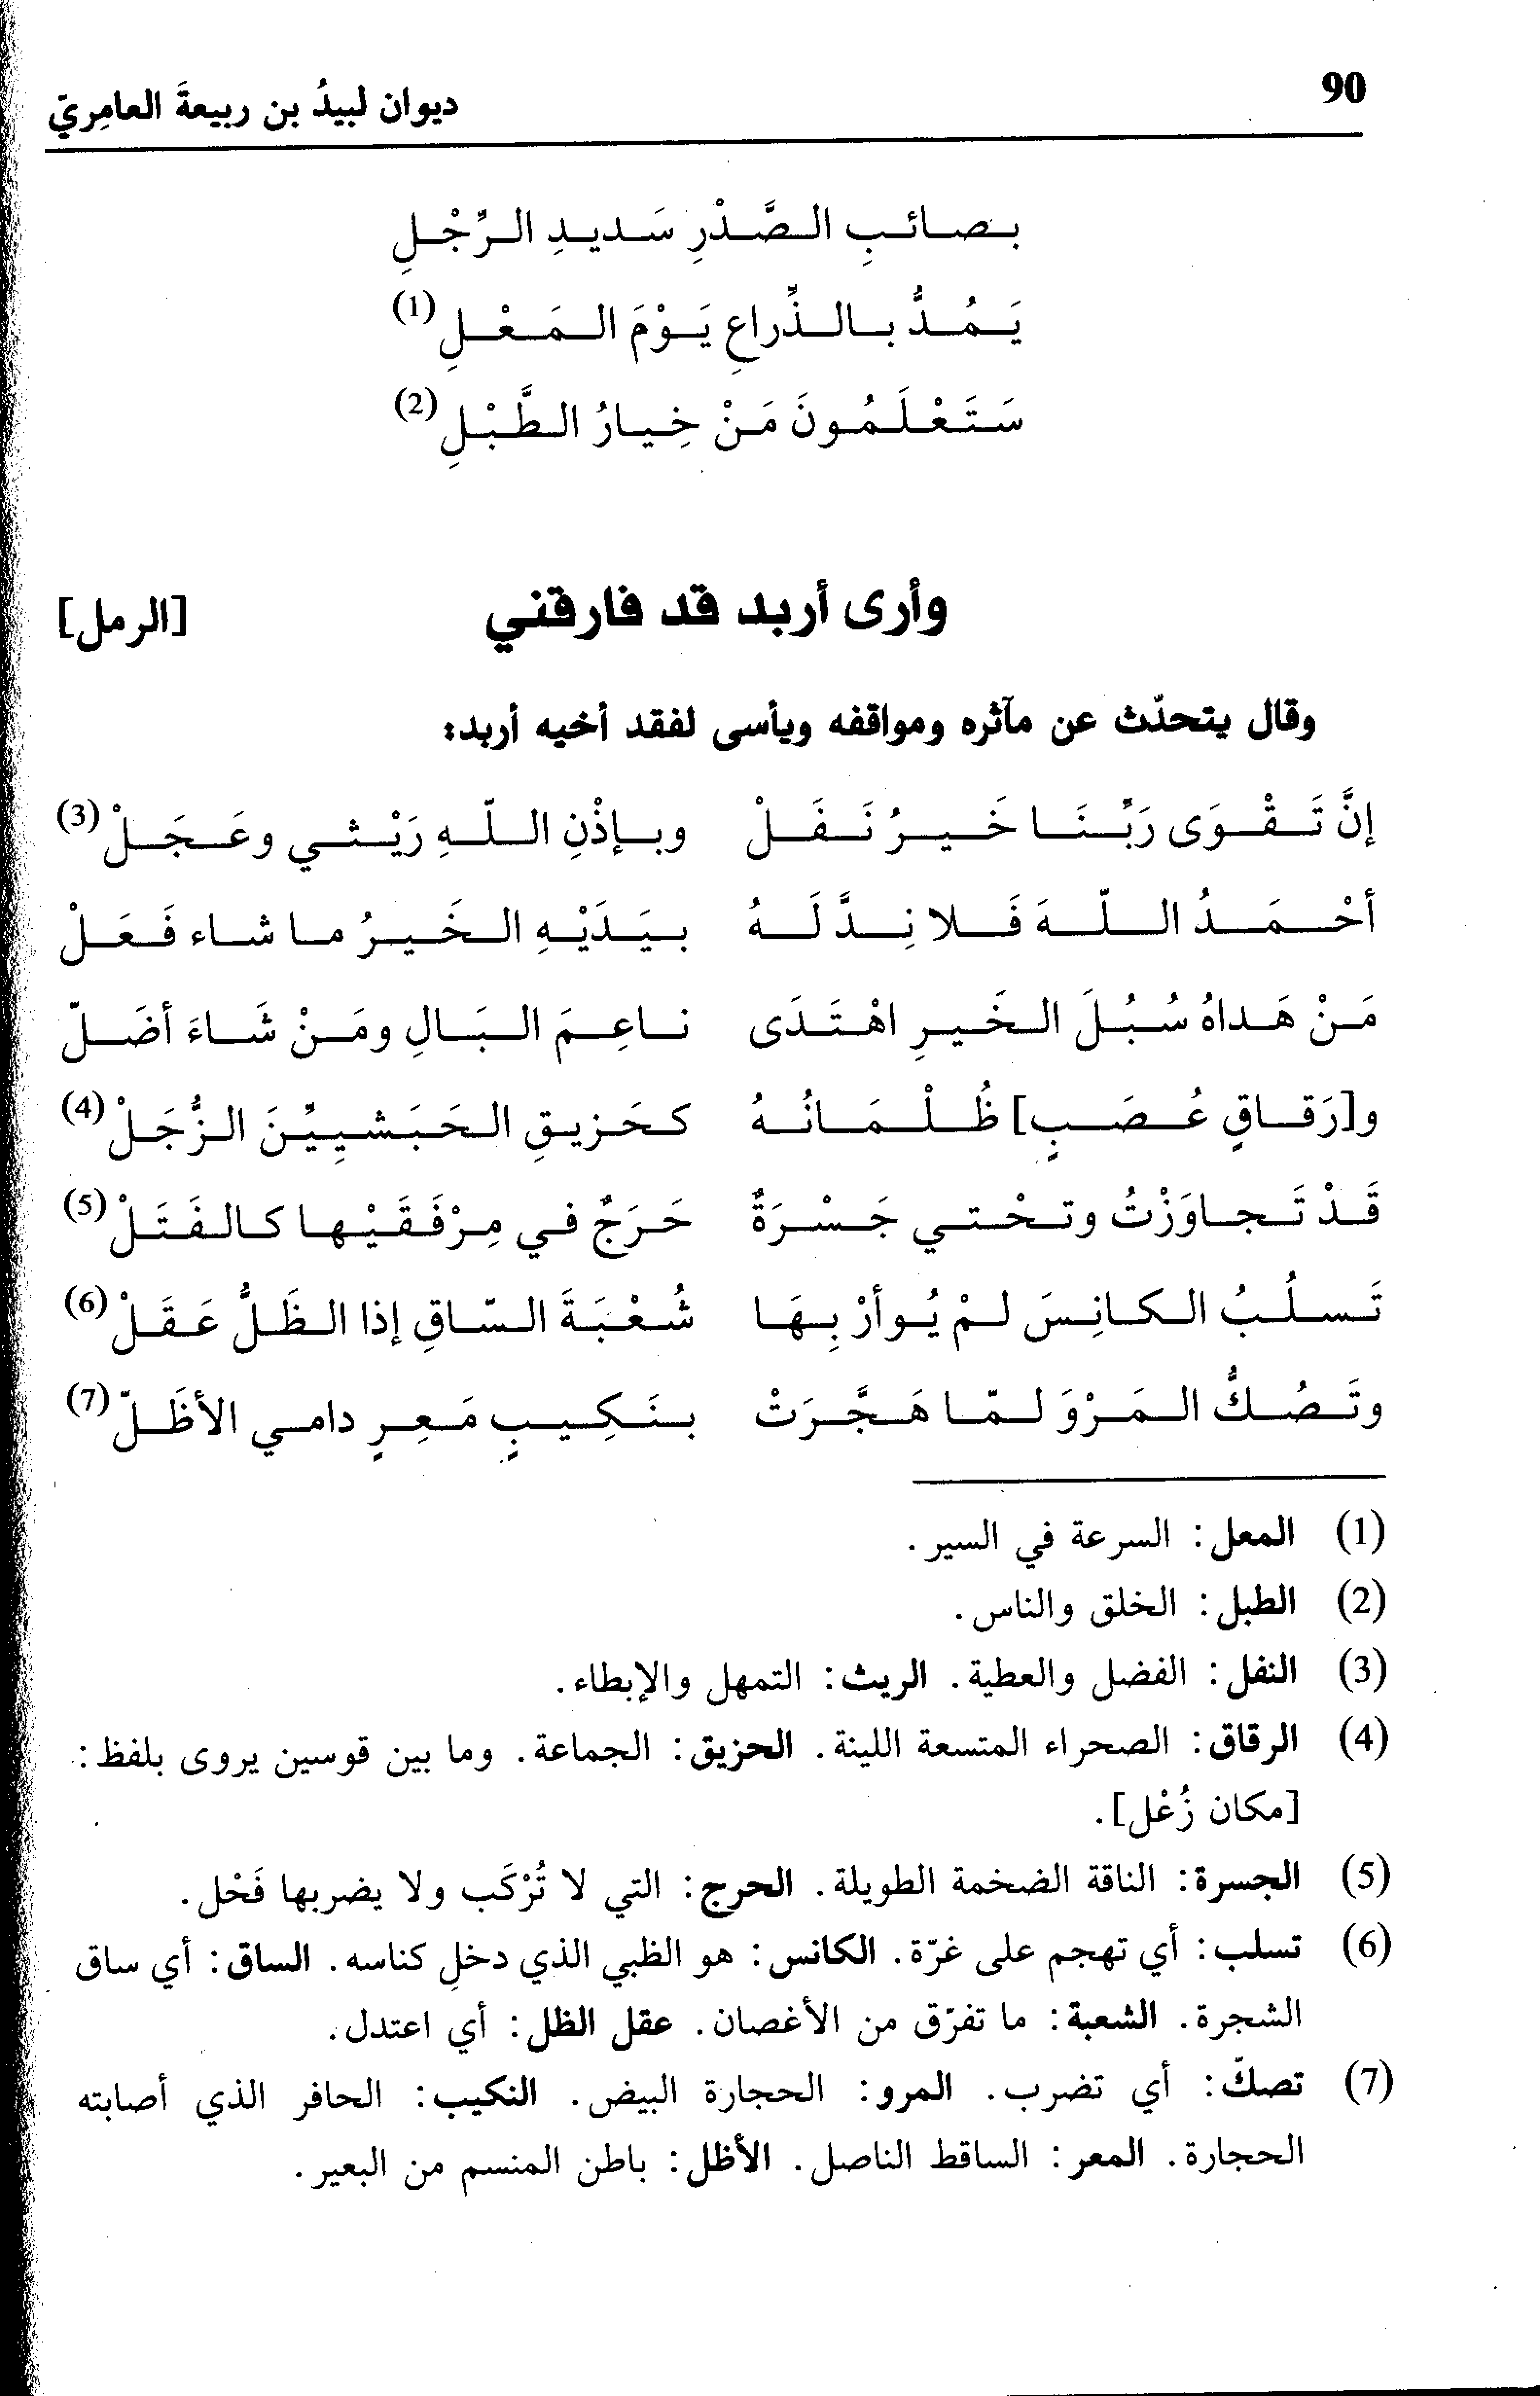 90
ديوان لبيدُ بن ربيعةَ العامِريّ
بصائبِ الصَّدْرِ سَديدِ الرِّجْلِ
يَمُدُّ بالذِّراعِ يَوْمَ المَعْلِ (1)
سَتَعْلَمُونَ مَنْ خِيارُ الطَّبْلِ (2)
وأرى أربد قد فارقني [الرمل]
وقال يتحدّث عن مآثره ومواقفه ويأسى لفقد أخيه أربد:
إنَّ تَقْوَى رَبِّنَا خَيرُ نَفَلْ وبإذْنِ اللّهِ رَيْثي وعَجَلْ (3)
أحْمَدُ اللّهَ فَلا نِدَّ لَهُ بيَدَيْهِ الخَيرُ ما شاء فَعَلْ
مَنْ هَداهُ سُبُلَ الخَيرِ اهْتَدَى ناعِمَ البَالِ ومَنْ شَاءَ أضَلّ
و[رَقاقٍ عُصَبٍ] ظُلْمَانُهُ كحَزيقِ الحَبَشيِيِّنَ الزُّجَلْ (4)
قَدْ تَجاوَزْتُ وتحْتي جَسْرَةٌ حَرَجٌ في مِرْفَقَيْها كالفَتَلْ (5)
تَسلُبُ الكانِسَ لمْ يُوأرْ بِهَا شُعْبَةَ السّاقِ إذا الظَلُّ عَقَلْ (6)
وتَصُكُّ المَرْوَ لمّا هَجَّرَتْ بنَكِيبٍ مَعِرٍ دامي الأظَلّ (7)
(1) المعل: السرعة في السير.
(2) الطبل: الخلق والناس.
(3) النفل: الفضل والعطية. الريث: التمهل والإبطاء.
(4) الرقاق: الصحراء المتسعة اللينة. الحزيق: الجماعة. وما بين قوسين يروى بلفظ:
[مكان زُعْل].
(5) الجسرة: الناقة الضخمة الطويلة. الحرج: التي لا تُرْكَب ولا يضربها فَحْل.
(6) تسلب: أي تهجم على غرّة. الكانس: هو الظبي الذي دخل كناسه. الساق: أي ساق
الشجرة. الشعبة: ما تفرّق من الأغصان. عقل الظل: أي اعتدل.
(7) تصكّ: أي تضرب. المرو: الحجارة البيض. النكيب: الحافر الذي أصابته
الحجارة. المعر: الساقط الناصل. الأظل: باطن المنسم من البعير.